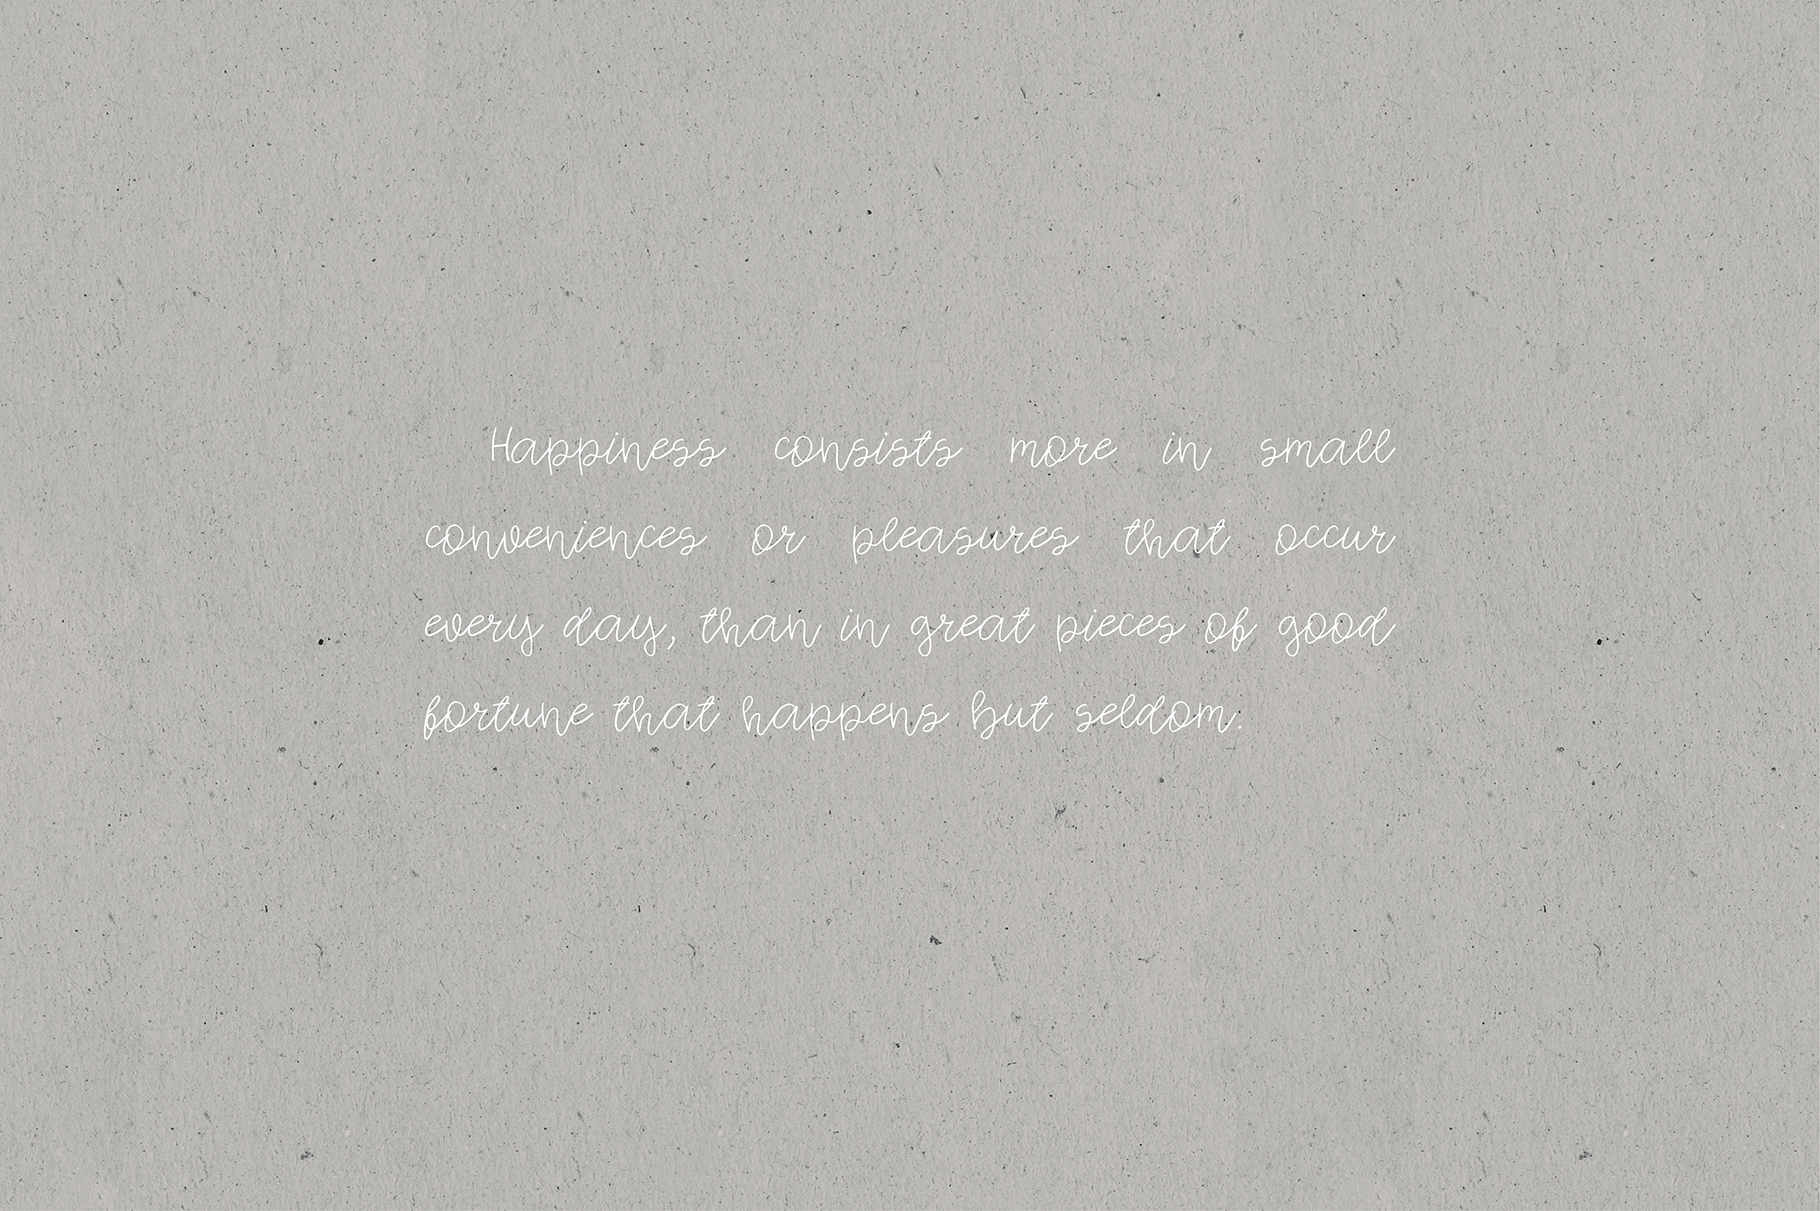 Happiness consists more in small
conveniences or pleasures that occur
every day, than in great pieces of good
fortune that happens but seldom.